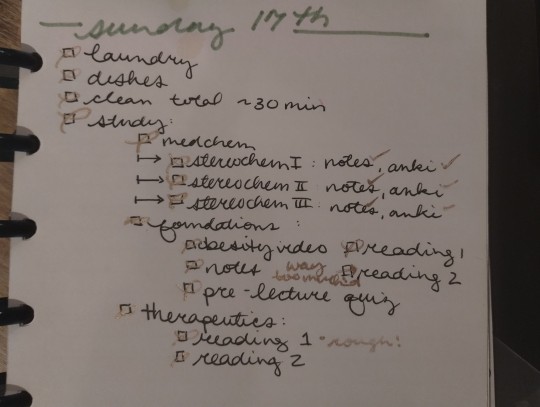 sunday 17th
laundry
dishes
clean total ~30 min
study:
medchem
stereochem I : notes, anki
stereochem II : notes, anki
stereochem III : notes, anki
foundations :
obesity video reading 1
notes way too winded reading 2
pre-lecture quiz
therapeutics:
reading 1 - rough!
reading 2